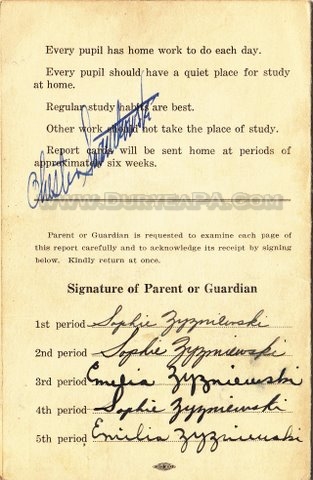 Every pupil has home work to do each day.
Every pupil should have a quiet place for study
at home.
Regular study habits are best.
Other work should not take the place of study.
Report cards will be sent home at periods of
approximately six weeks.
WWW.DURYEAPA.COM
Parent or Guardian is requested to examine each page of
this report carefully and to acknowledge its receipt by signing
below. Kindly return at once.
Signature of Parent or Guardian
1st period Sophie Zyzniewski
2nd period Sophie Zyzniewski
3rd period Emilia Zyzniewski
4th period Sophie Zyzniewski
5th period Emilia Zyzniewski